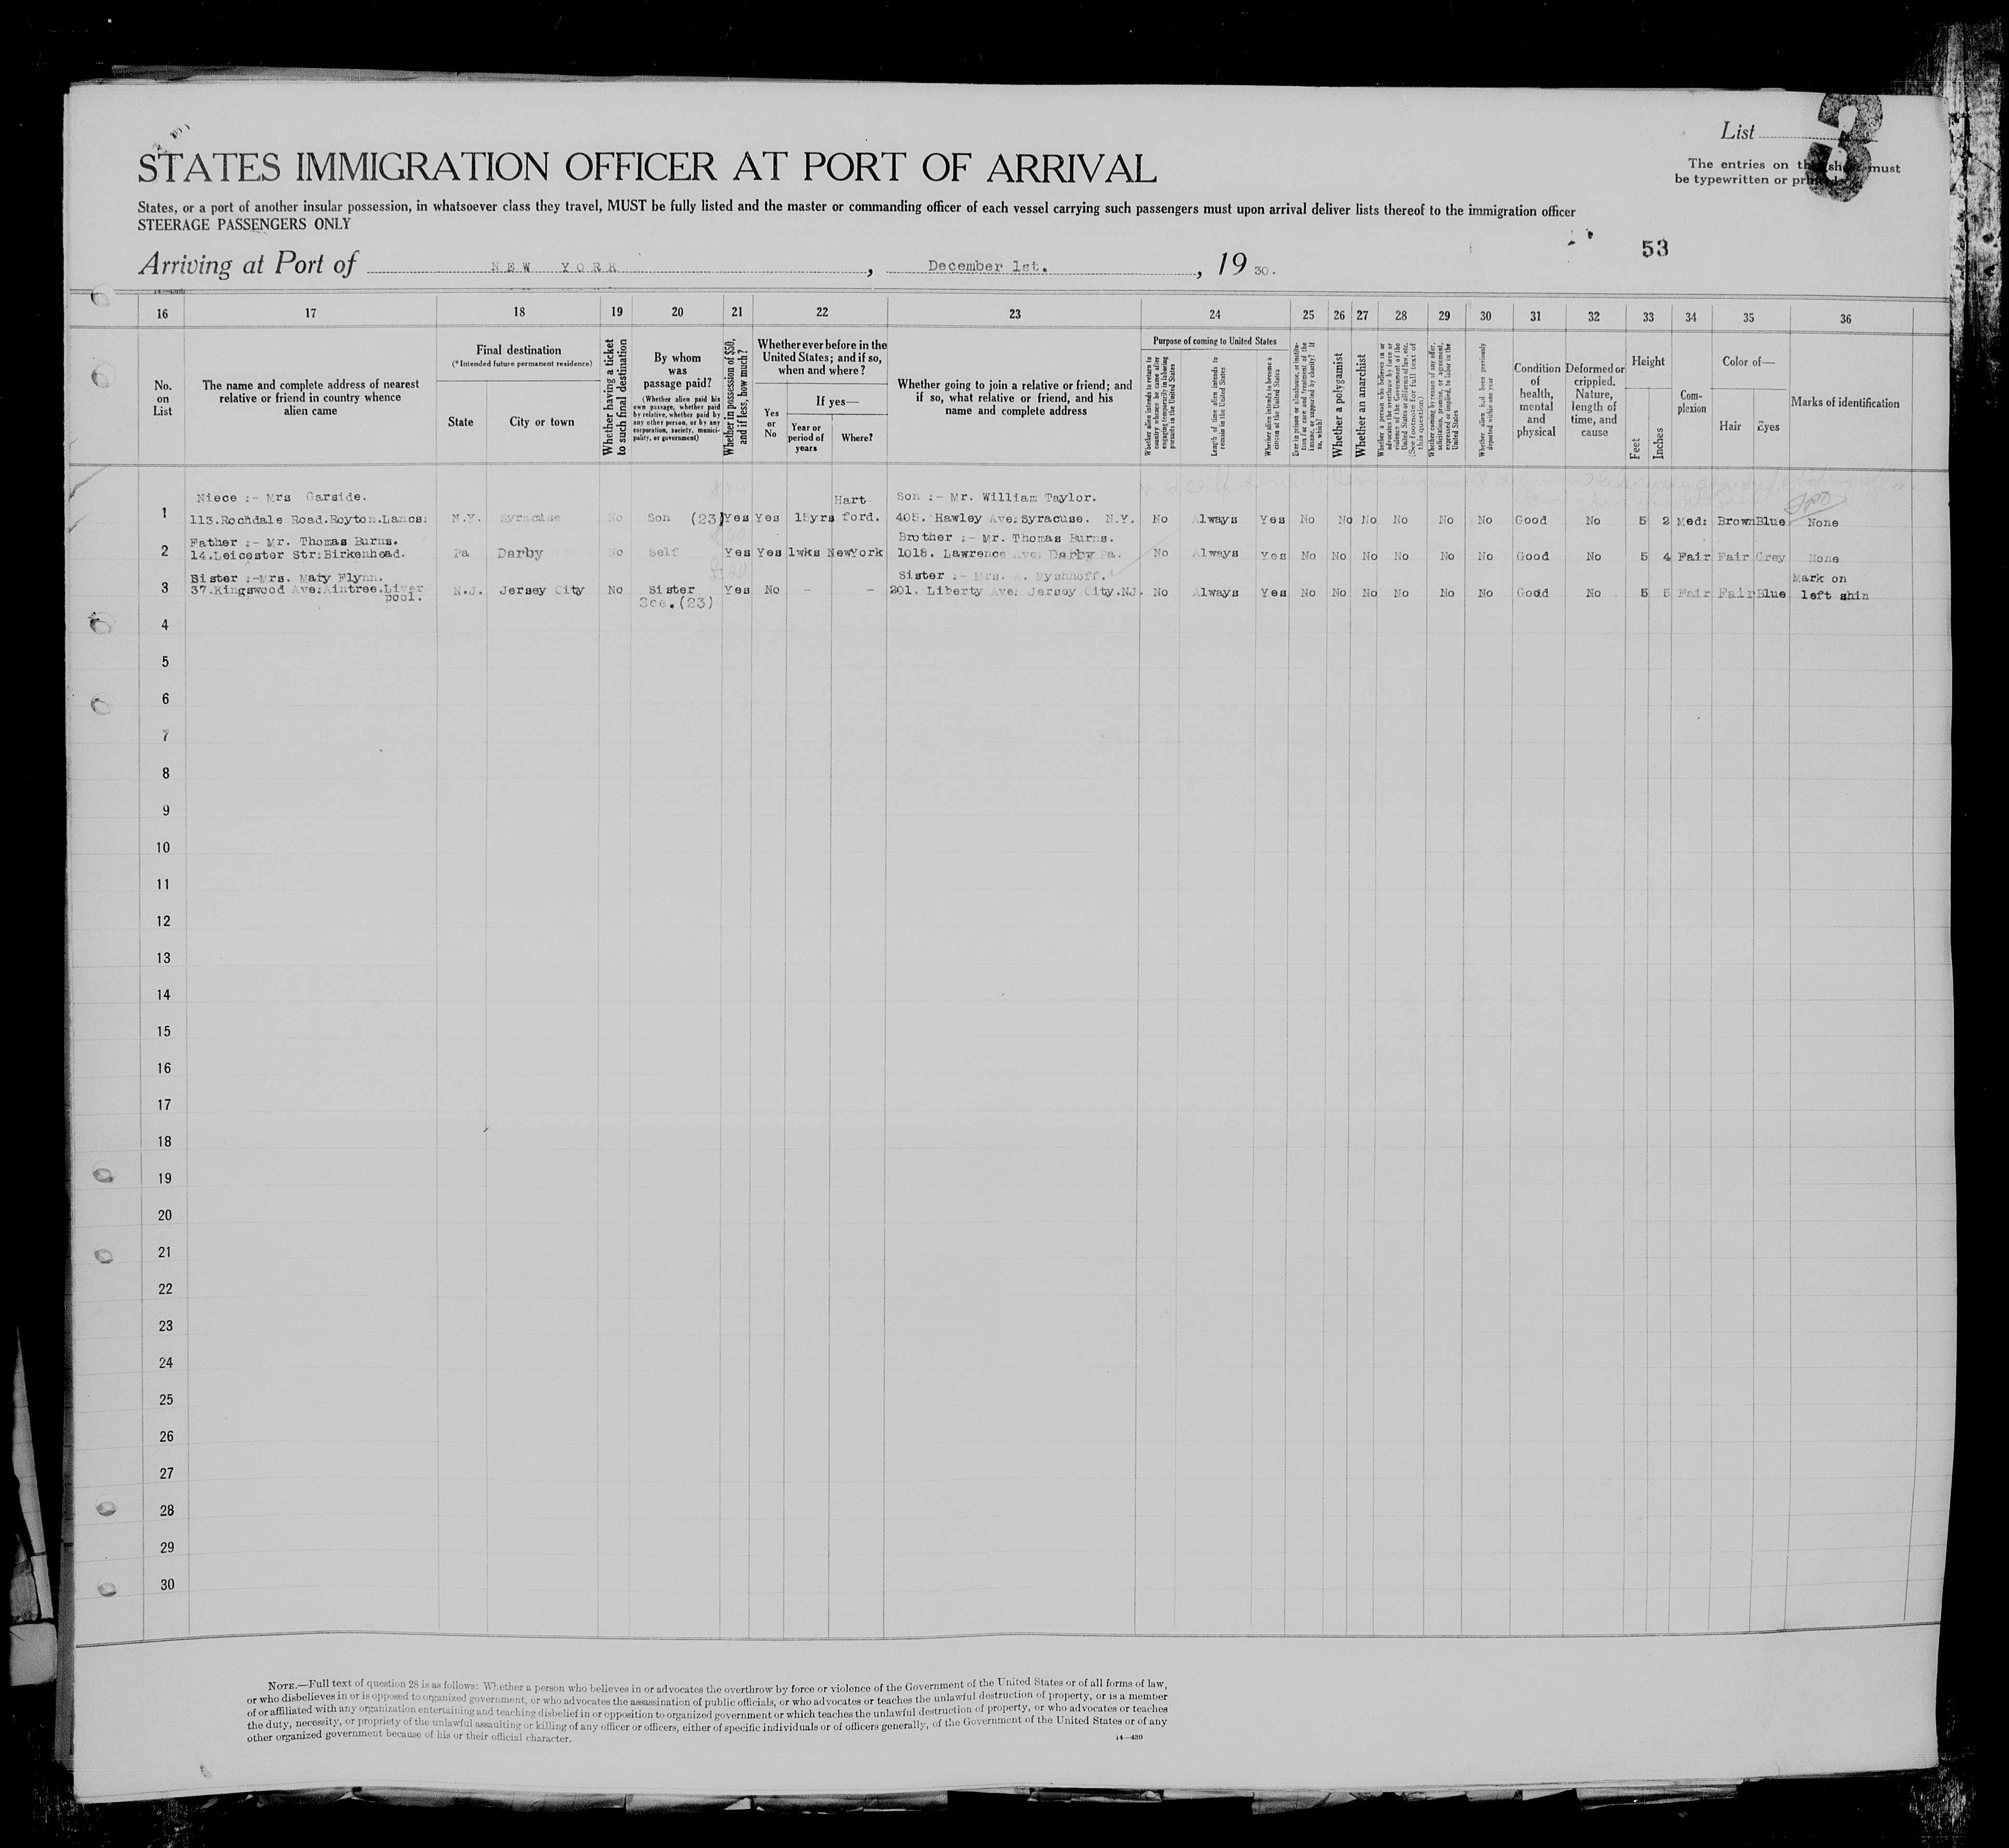 List 3
STATES IMMIGRATION OFFICER AT PORT OF ARRIVAL
The entries on this sheet must
be typewritten or printed
States, or a port of another insular possession, in whatsoever class they travel, MUST be fully listed and the master or commanding officer of each vessel carrying such passengers must upon arrival deliver lists thereof to the immigration officer
STEERAGE PASSENGERS ONLY
53
Arriving at Port of NEW YORK, December 1st., 19 30.
16 17 18 19 20 21 22 23 24 25 26 27 28 29 30 31 32 33 34 35 36
No. on List
The name and complete address of nearest relative or friend in country whence alien came
Final destination
(*Intended future permanent residence)
State
City or town
Whether having a ticket to such final destination
By whom was passage paid?
(Whether alien paid his own passage, whether paid by relative, whether paid by any other person, or by any corporation, society, municipality, or government)
Whether in possession of $50, and if less, how much?
Whether ever before in the United States; and if so, when and where?
Yes or No
If yes—
Year or period of years
Where?
Whether going to join a relative or friend; and if so, what relative or friend, and his name and complete address
Purpose of coming to United States
Whether alien intends to return to country whence he came after engaging temporarily in laboring pursuits in the United States
Length of time alien intends to remain in the United States
Whether alien intends to become a citizen of the United States
Ever in prison or almshouse, or institution for care and treatment of the insane, or supported by charity? If so, which?
Whether a polygamist
Whether an anarchist
Whether a person who believes in or advocates the overthrow by force or violence of the Government of the United States or all forms of law, etc. (See footnote for full text of this question)
Whether coming by reason of any offer, solicitation, promise, or agreement, expressed or implied, to labor in the United States
Whether alien had been previously deported within one year
Condition of health, mental and physical
Deformed or crippled. Nature, length of time, and cause
Height
Feet
Inches
Complexion
Color of—
Hair
Eyes
Marks of identification
Niece :- Mrs Garside. Hart Son :- Mr. William Taylor.
1 113.Rochdale Road.Royton.Lancs: N.Y. Syracuse No Son (23) Yes Yes 15yrs ford. 405. Hawley Ave:Syracuse. N.Y. No Always Yes No No No No No No Good No 5 2 Med: Brown Blue None
Father :- Mr. Thomas Burns. Brother :- Mr. Thomas Burns.
2 14.Leicester Str:Birkenhead. Pa Darby No Self Yes Yes 1wks NewYork 1018. Lawrence Ave. Darby Pa. No Always Yes No No No No No No Good No 5 4 Fair Fair Grey None
Sister :-Mrs. Mary Flynn. Sister :- Mrs. Myshhoff. Mark on
3 37.Kingswood Ave:Aintree.Liver N.J. Jersey City No Sister Yes No - - 201. Liberty Ave: Jersey City.NJ. No Always Yes No No No No No No Good No 5 5 Fair Fair Blue left shin
pool. See.(23)
4
5
6
7
8
9
10
11
12
13
14
15
16
17
18
19
20
21
22
23
24
25
26
27
28
29
30
NOTE.—Full text of question 28 is as follows: Whether a person who believes in or advocates the overthrow by force or violence of the Government of the United States or of all forms of law,
or who disbelieves in or is opposed to organized government, or who advocates the assassination of public officials, or who advocates or teaches the unlawful destruction of property, or is a member
of or affiliated with any organization entertaining and teaching disbelief in or opposition to organized government or which teaches the unlawful destruction of property, or who advocates or teaches
the duty, necessity, or propriety of the unlawful assaulting or killing of any officer or officers, either of specific individuals or of officers generally, of the Government of the United States or of any
other organized government because of his or their official character.
14—430